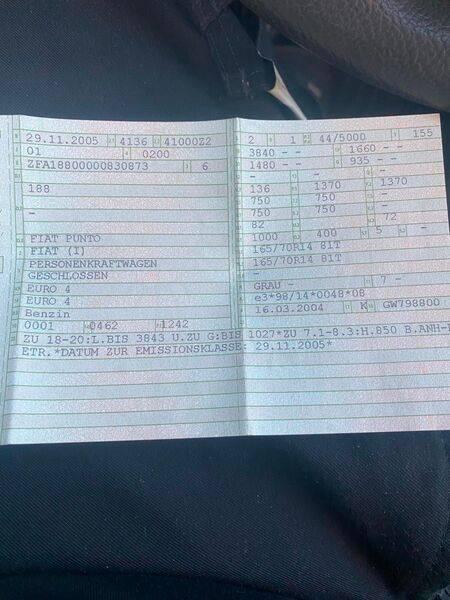 29.11.2005 4136 41000Z2
01 0200
ZFA18800000830873 6
188
-
FIAT PUNTO
FIAT (I)
PERSONENKRAFTWAGEN
GESCHLOSSEN
EURO 4
EURO 4
Benzin
0001 0462 1242
2 1 44/5000 155
3840 - - 1660 - -
1480 - - 935 - -
- - -
136 1370 1370
750 750 -
750 750 -
82 - 72
1000 400 5 -
165/70R14 81T
165/70R14 81T
-
GRAU - 7 -
e3*98/14*0048*08
16.03.2004 K GW798800
ZU 18-20:L.BIS 3843 U.ZU G:BIS 1027*ZU 7.1-8.3:H.850 B.ANH-B
ETR.*DATUM ZUR EMISSIONSKLASSE: 29.11.2005*